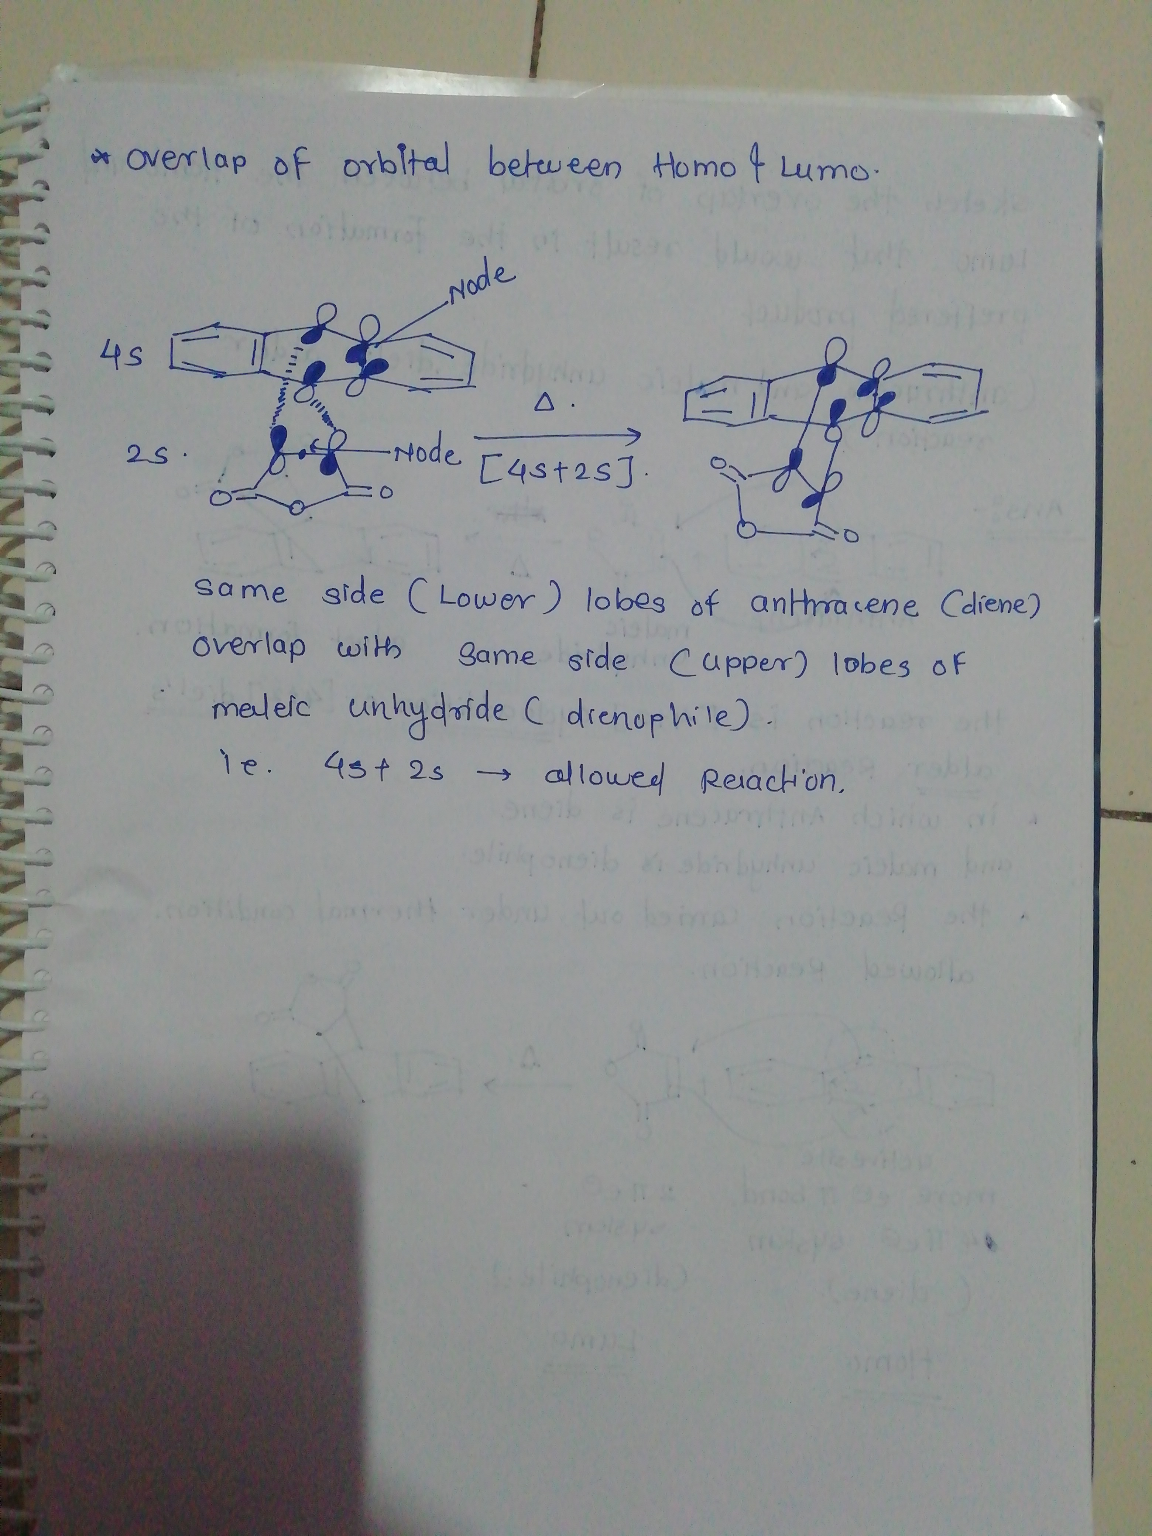 * overlap of orbital between Homo & Lumo.
Node
4s
Δ.
2s.
Node
[4s+2s].
O
O
O
O
O
O
same side (Lower) lobes of anthracene (diene)
overlap with same side (upper) lobes of
maleic unhydride (dienophile).
ie. 4s+ 2s → allowed Reaction.